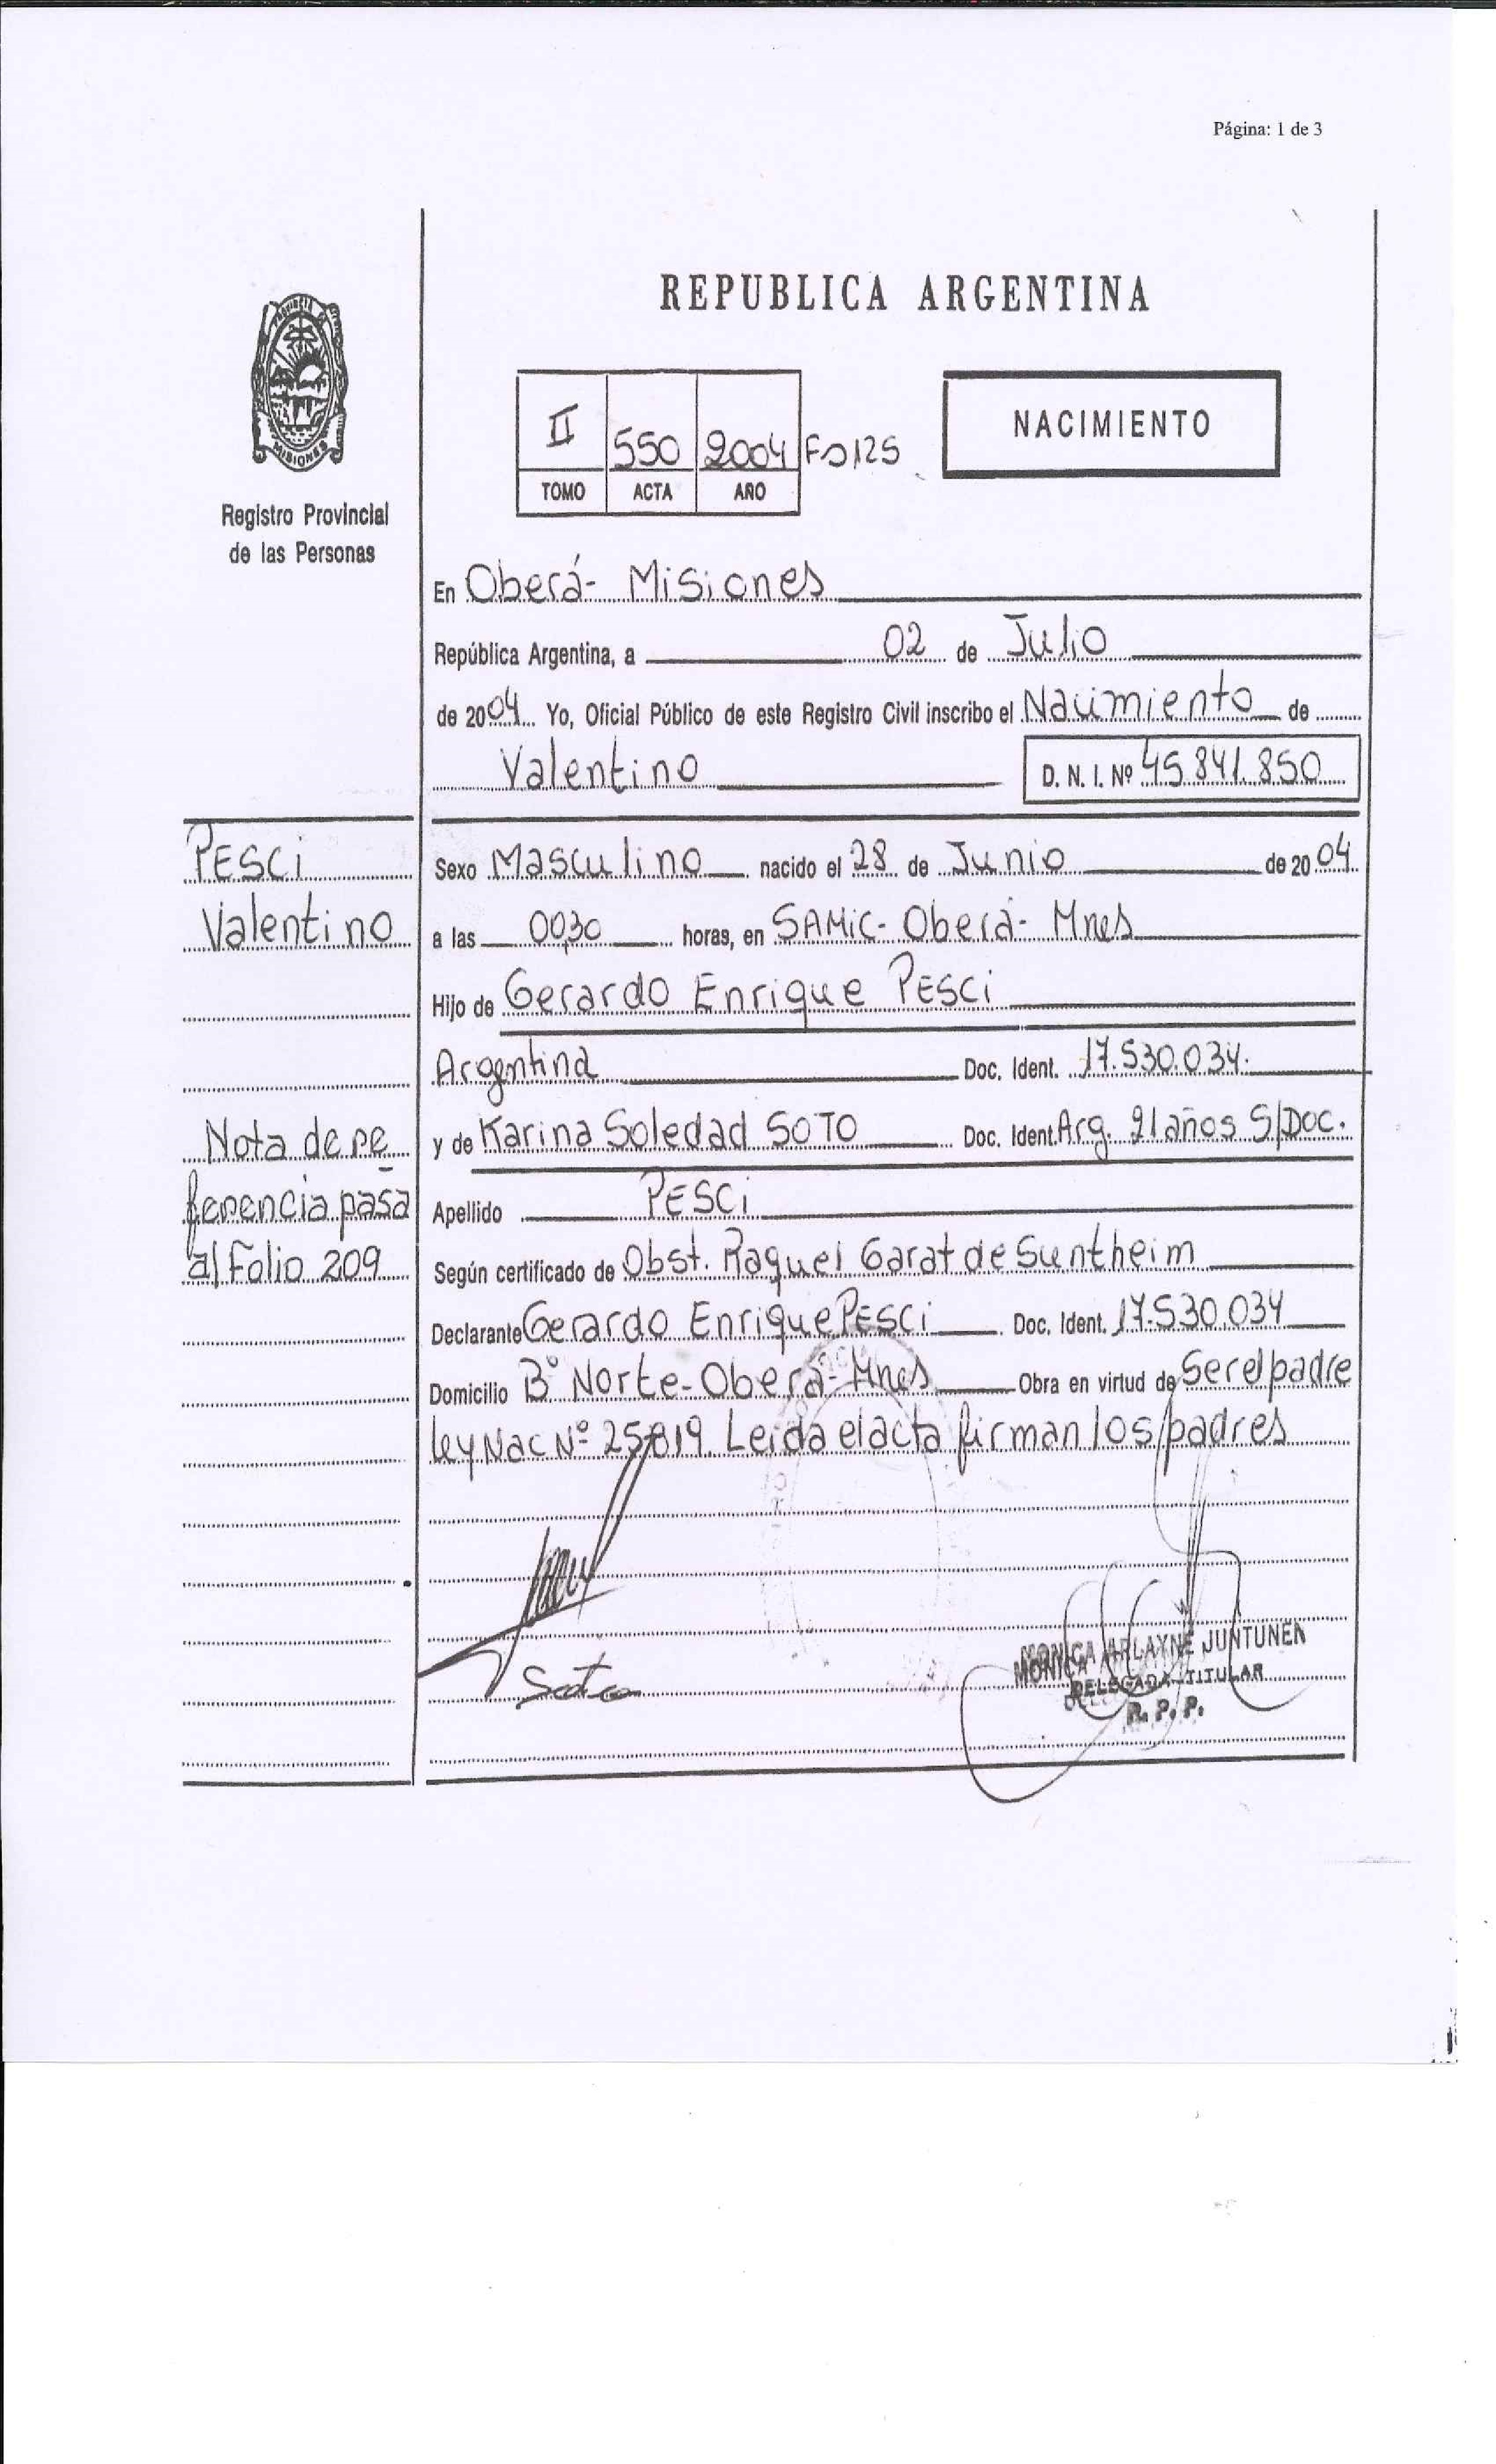 Página: 1 de 3
REPUBLICA ARGENTINA
MISIONES
Registro Provincial
de las Personas
II 550 2004 Fo 125
TOMO ACTA AÑO
NACIMIENTO
En Oberá- Misiones
República Argentina, a 02 de Julio
de 2004 Yo, Oficial Público de este Registro Civil inscribo el Nacimiento de
Valentino D. N. I. Nº 45.841.850
PESCi
Valentino
Nota de re
ferencia pasa
al Folio 209
Sexo Masculino nacido el 28 de Junio de 2004
a las 0030 horas, en SAMiC- Oberá- Mnes
Hijo de Gerardo Enrique PESCi
Argentina Doc. Ident. 17.530.034.
y de Karina Soledad SOTO Doc. Ident. Arg. 21 años S/Doc.
Apellido PESCi
Según certificado de Obst. Raquel Garat de Suntheim
Declarante Gerardo Enrique PESCi Doc. Ident. 17.530.034
Domicilio Bº Norte-Oberá-Mnes Obra en virtud de Ser el padre
ley Nac Nº 25819. Leida el acta firman los padres
Soto
MONICA ARLAYNE JUNTUNEN
DELEGADA TITULAR
R. P. P.